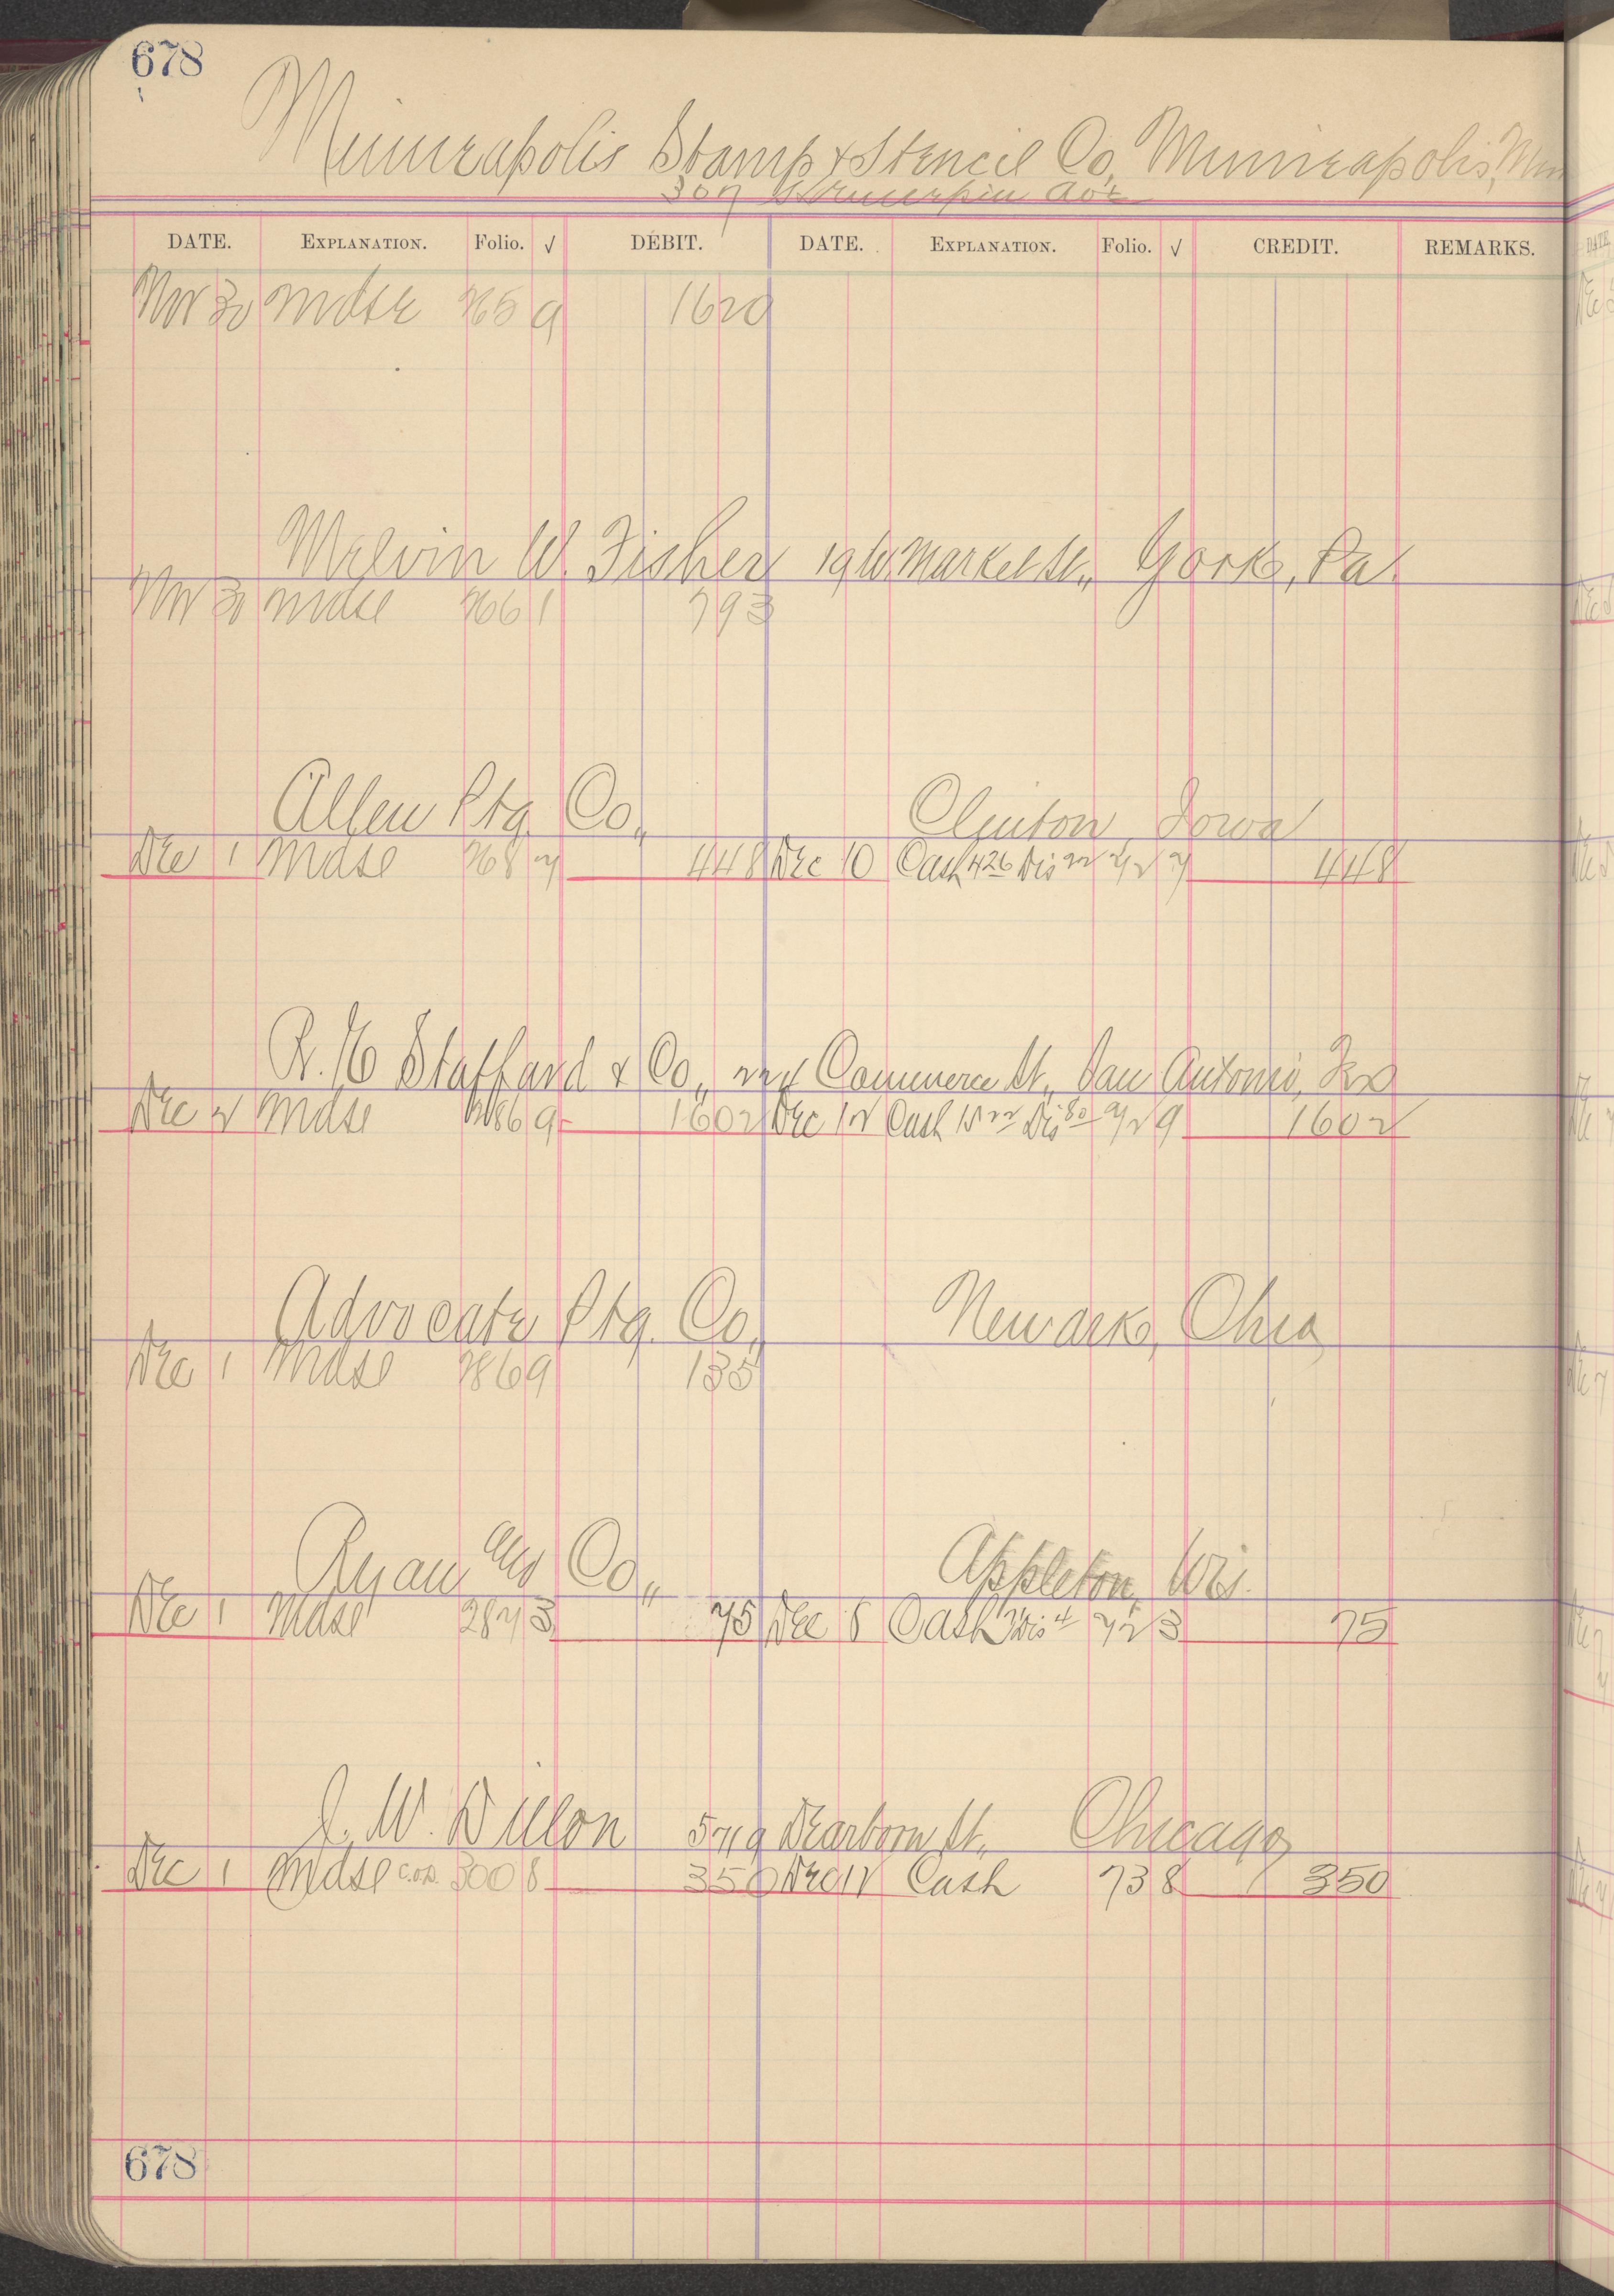 678
Minneapolis Stamp & Stencil Co, Minneapolis, Min
307 Hennepin Ave
DATE. EXPLANATION. Folio. √ DEBIT. DATE. EXPLANATION. Folio. √ CREDIT. REMARKS.
Nov 30 Mdse 2659 1620
Melvin W. Fisher 19 W. Market St., York, Pa.
Nov 30 Mdse 2661 793
Allen Ptg Co., Clinton, Iowa
Dec 1 Mdse 2687 448 Dec 10 Cash 426 Dis 22 727 448
Stafford & Co., Commerce St., San Antonio, Tex
Dec 2 Mdse 2869 1602 Dec 12 Cash 1522 Dis 80 729 1602
Advocate Ptg. Co., Newark, Ohio
Dec 1 Mdse 2869 135
Ryan Co., Appleton, Wis.
Dec 1 Mdse 2873 75 Dec 8 Cash 71 Dis 4 723 75
J. W. Dillon Dearborn St., Chicago
Dec 1 Mdse C.O.D. 3008 350 Dec 12 Cash 738 350
678